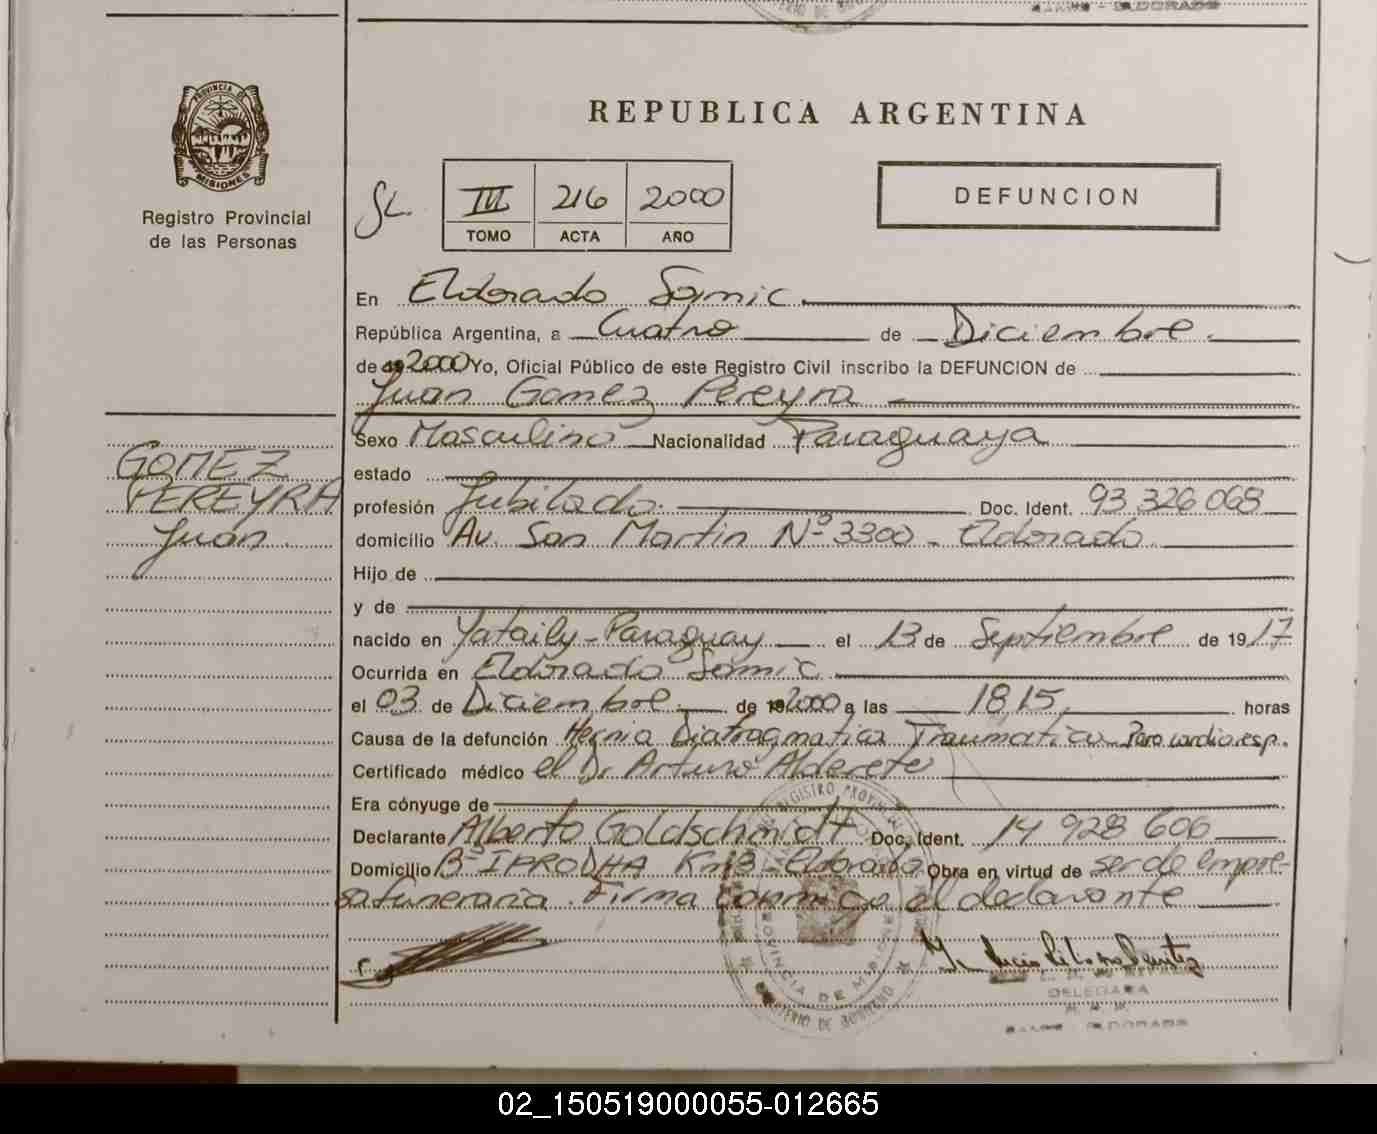 PROVINCIA DE
MISIONES
Registro Provincial
de las Personas
REPUBLICA ARGENTINA
III 216 2000
TOMO ACTA AÑO
DEFUNCION
En Eldorado Samic
República Argentina, a Cuatro de Diciembre.
de 19 2000 Yo, Oficial Público de este Registro Civil inscribo la DEFUNCION de
Juan Gomez Pereyra
Sexo Masculino Nacionalidad Paraguaya
GOMEZ
PEREYRA
Juan
estado
profesión Jubilado. Doc. Ident. 93 326 068
domicilio Av. San Martin Nº 3300 - Eldorado
Hijo de
y de
nacido en Yataily - Paraguay el 13 de Septiembre de 19 17
Ocurrida en Eldorado Samic
el 03 de Diciembre de 19 2000 a las 18,15, horas
Causa de la defunción Hernia Diafragmatica Traumatica Paro cardio.resp.
Certificado médico el Dr Arturo Alderete
Era cónyuge de
Declarante Alberto Goldschmidt Doc. Ident. 14 928 606
Domicilio Bº IPRODHA Km 3 - Eldorado Obra en virtud de ser de empre-
sa funeraria. Firma conmigo el declarante
PROVINCIA DE MISIONES
DELEGADA
02_150519000055-012665